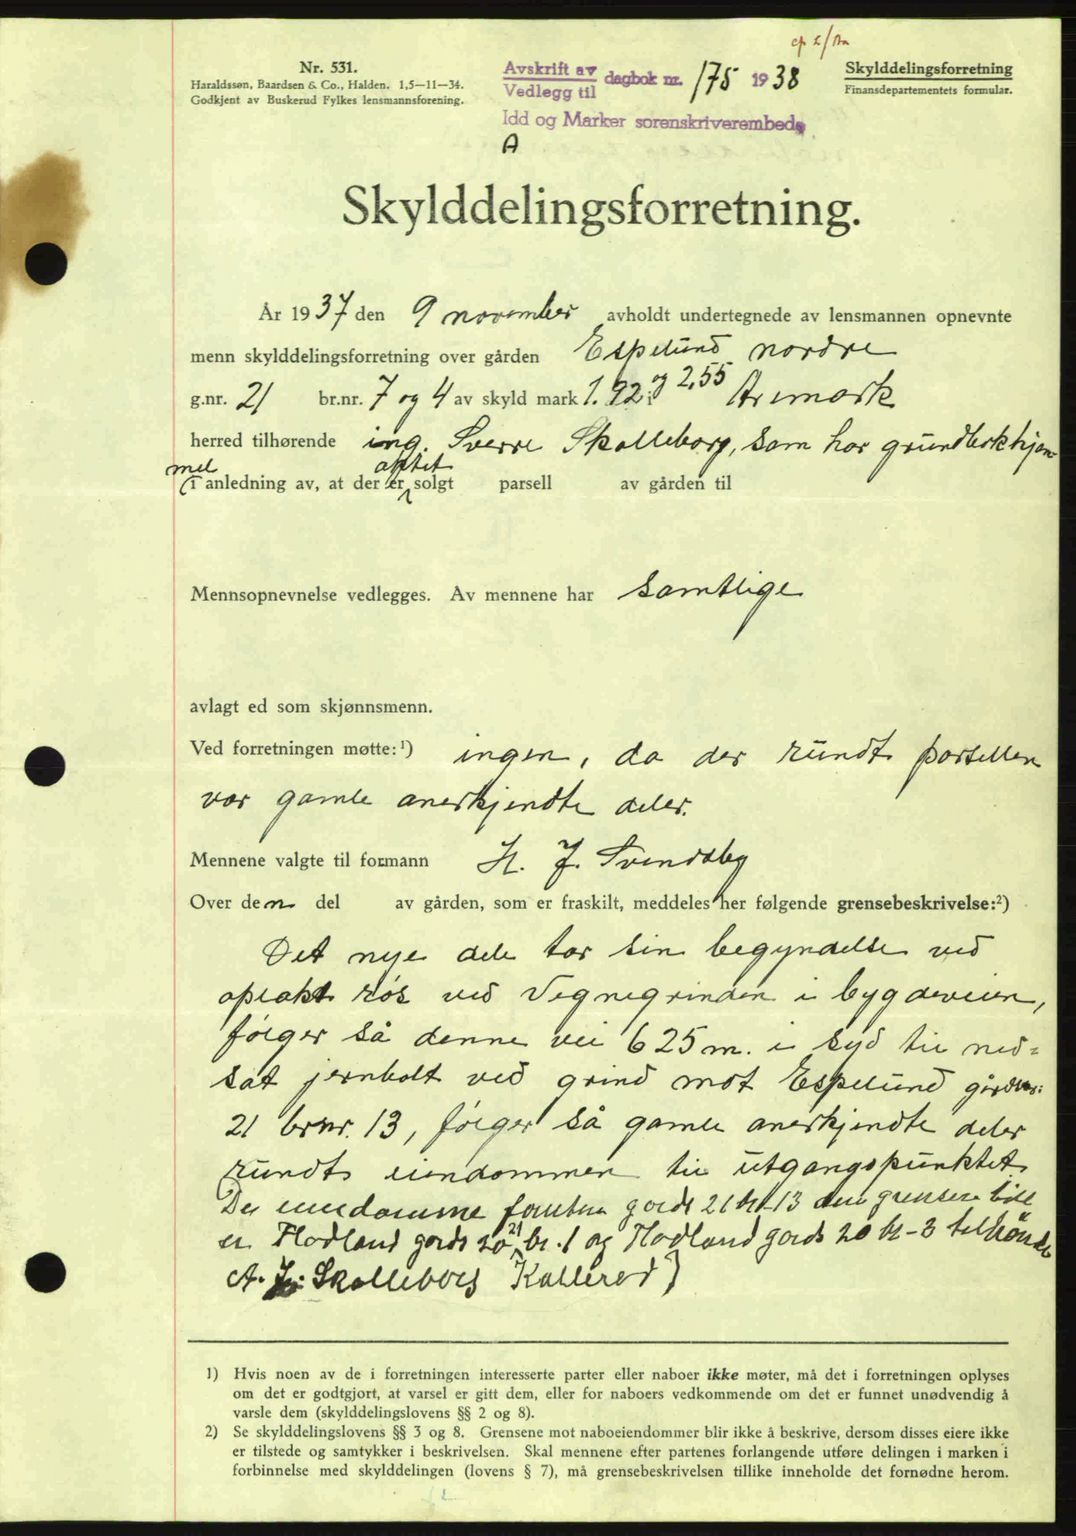 cp 2/
Nr. 531.
Haraldssøn, Baardsen & Co., Halden. 1,5—11—34.
Godkjent av Buskerud Fylkes lensmannsforening.
Avskrift av
Vedlegg til dagbok nr. 175 1938
Idd og Marker sorenskriverembede
A
Skylddelingsforretning
Finansdepartementets formular.
Skylddelingsforretning.
År 1937 den 9 november avholdt undertegnede av lensmannen opnevnte
menn skylddelingsforretning over gården Espelund nordre
g.nr. 21 br.nr. 7 og 4 av skyld mark 1.92 og 2,55 i Aremark
herred tilhørende ing. Sverre Skolleborg, som har grundbokhjem-
mel
i anledning av, at der er aptet solgt parsell av gården til
Mennsopnevnelse vedlegges. Av mennene har samtlige
avlagt ed som skjønnsmenn.
Ved forretningen møtte:¹) ingen, da der rundt parsellen
var gamle anerkjendte deler.
Mennene valgte til formann H. J. Svendsby
Over den del av gården, som er fraskilt, meddeles her følgende grensebeskrivelse:²)
Det nye dele tar sin begyndelse ved
oplakt røs ved Vegnegrinden i bygdeveien,
følger så denne vei 625 m. i syd til ned-
sat jernbolt ved grind mot Espelund gårdsnr.
21 brnr. 13, følger så gamle anerkjendte deler
rundt eiendommen til utgangspunktet
De eiendomme foruten gords 21 br-13 den grenser til
er Flodland gords 20 21 br. 1 og Flodland gords 20 br-3 tilhönde
A. Skolleborg Kallerød)
1) Hvis noen av de i forretningen interesserte parter eller naboer ikke møter, må det i forretningen oplyses
om det er godtgjort, at varsel er gitt dem, eller for naboers vedkommende om det er funnet unødvendig å
varsle dem (skylddelingslovens §§ 2 og 8).
2) Se skylddelingslovens §§ 3 og 8. Grensene mot naboeiendommer blir ikke å beskrive, dersom disses eiere ikke
er tilstede og samtykker i beskrivelsen. Skal mennene efter partenes forlangende utføre delingen i marken i
forbinnelse med skylddelingen (lovens § 7), må grensebeskrivelsen tillike inneholde det fornødne herom.